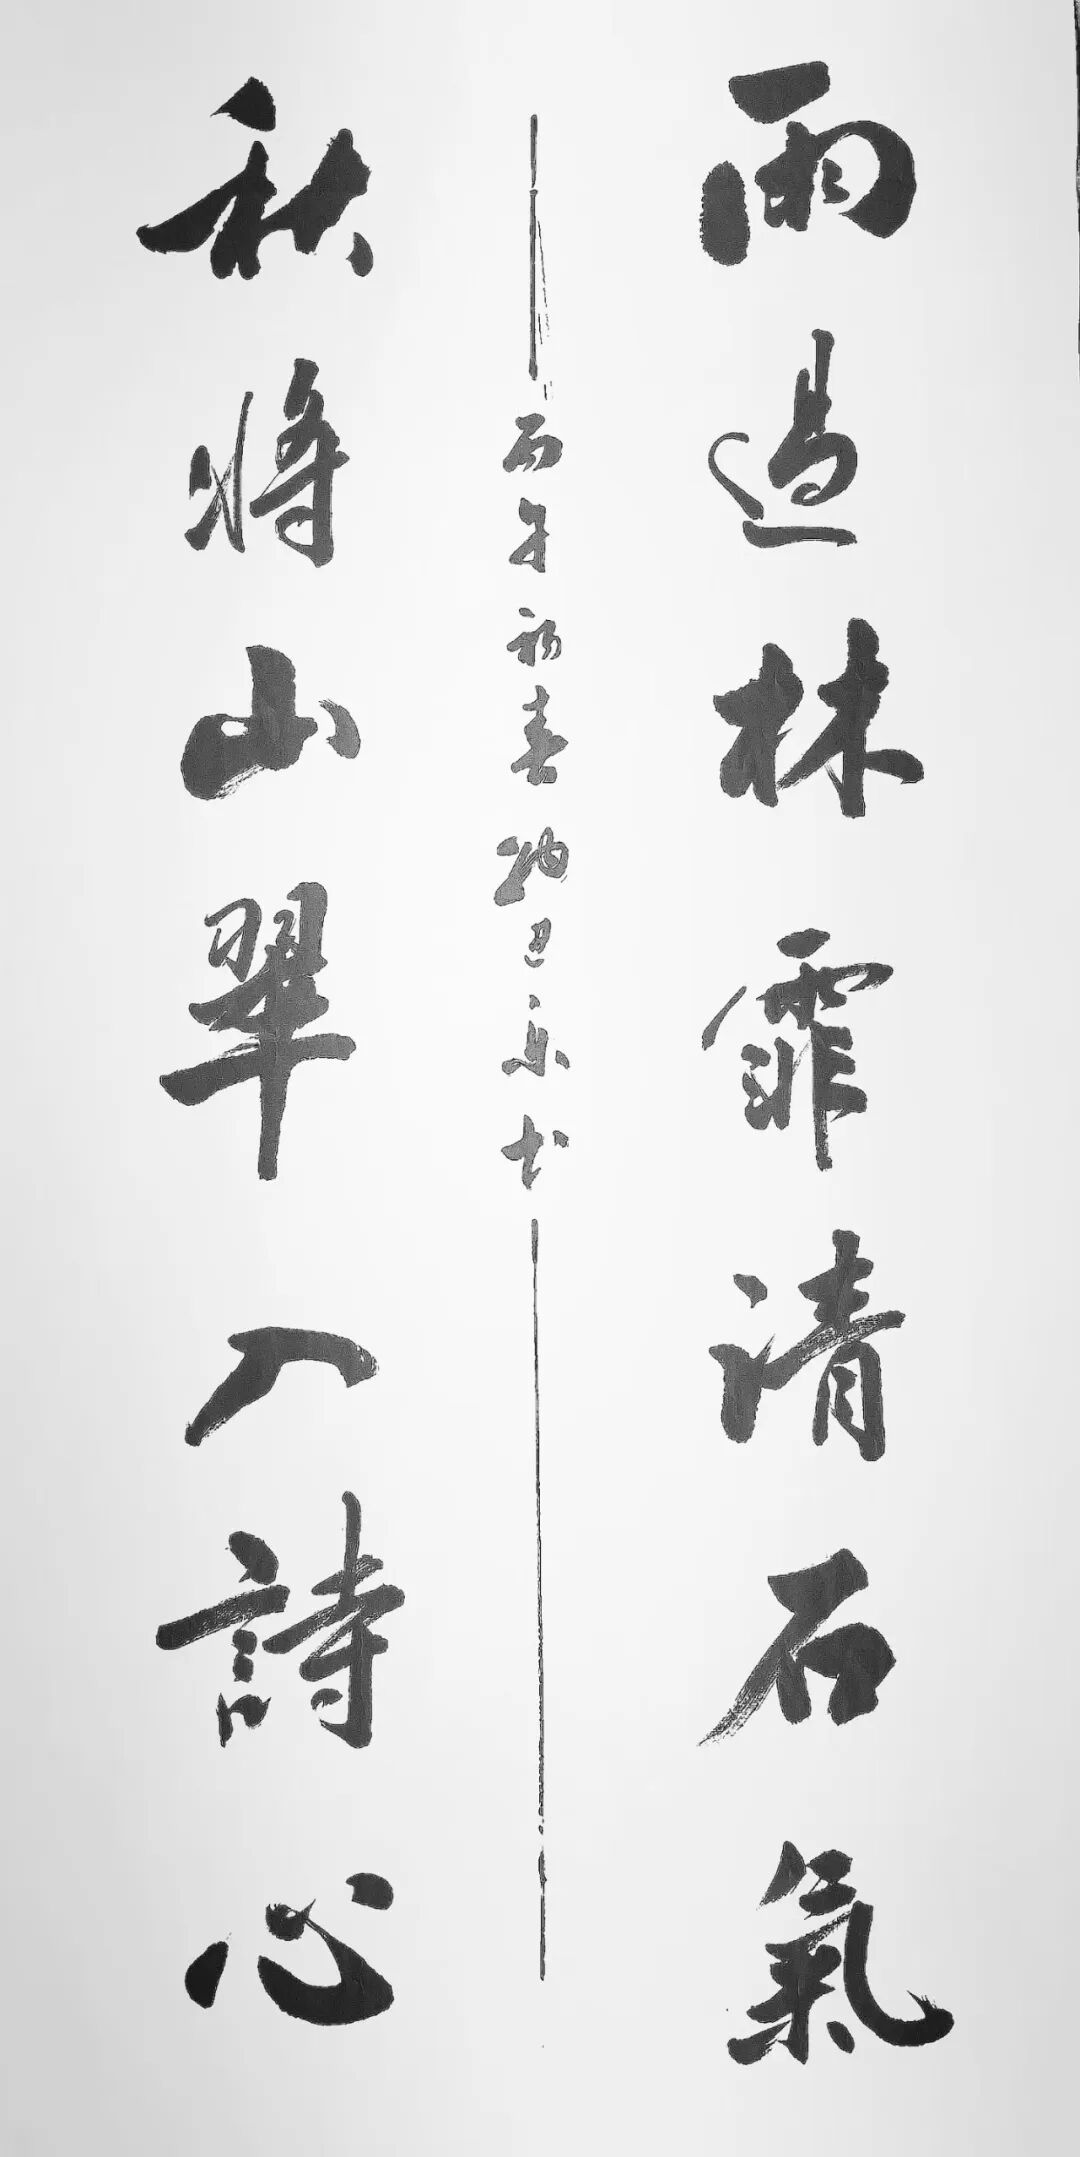 雨過林霏清石氣
丙午初春 書
秋將山翠入詩心